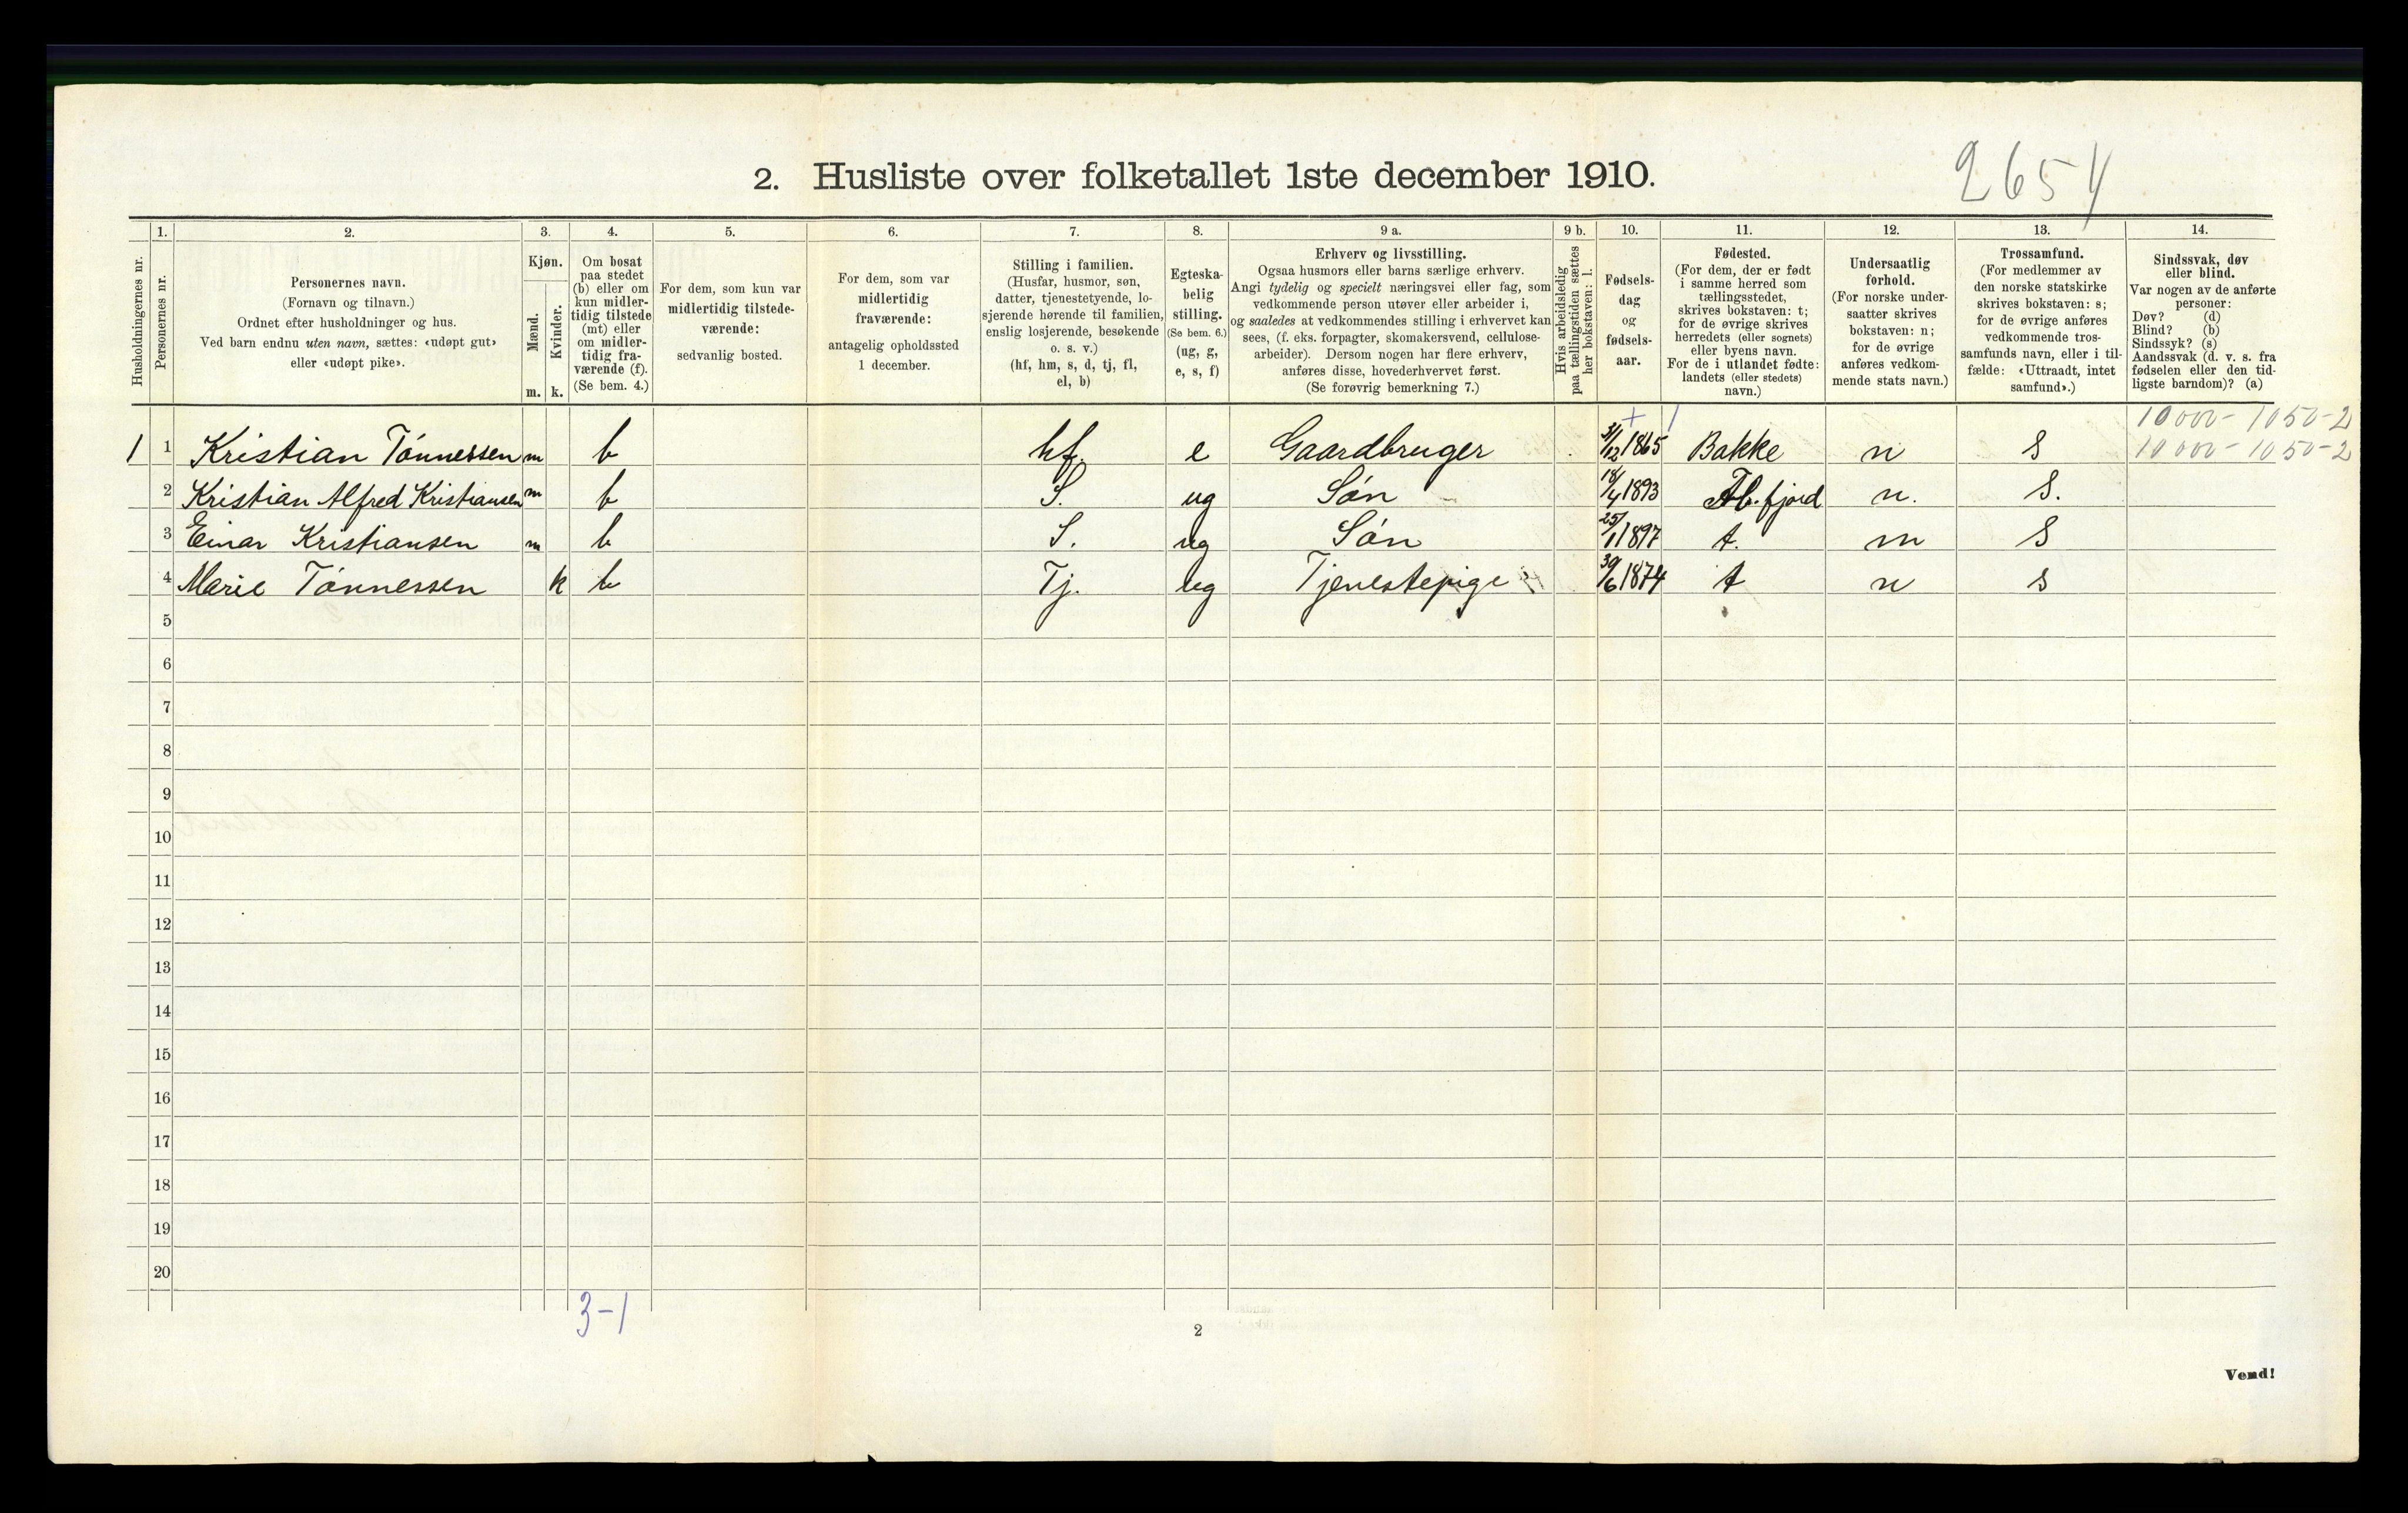 2654
2. Husliste over folketallet 1ste december 1910.
Husholdningernes nr.
1.
Personernes nr.
2.
Personernes navn.
(Fornavn og tilnavn.)
Ordnet efter husholdninger og hus.
Ved barn endnu uten navn, sættes: «udøpt gut»
eller «udøpt pike».
3.
Kjøn.
Mænd.
Kvinder.
m. k.
4.
Om bosat
paa stedet
(b) eller om
kun midler-
tidig tilstede
(mt) eller
om midler-
tidig fra-
værende (f).
(Se bem. 4.)
5.
For dem, som kun var
midlertidig tilstede-
værende:
sedvanlig bosted.
6.
For dem, som var
midlertidig
fraværende:
antagelig opholdssted
1 december.
7.
Stilling i familien.
(Husfar, husmor, søn,
datter, tjenestetyende, lo-
sjerende hørende til familien,
enslig losjerende, besøkende
o. s. v.)
(hf, hm, s, d, tj, fl,
el, b)
8.
Egteska-
belig
stilling.
(Se bem. 6.)
(ug, g,
e, s, f)
9 a.
Erhverv og livsstilling.
Ogsaa husmors eller barns særlige erhverv.
Angi tydelig og specielt næringsvei eller fag, som
vedkommende person utøver eller arbeider i,
og saaledes at vedkommendes stilling i erhvervet kan
sees, (f. eks. forpagter, skomakersvend, cellulose-
arbeider). Dersom nogen har flere erhverv,
anføres disse, hovederhvervet først.
(Se forøvrig bemerkning 7.)
9 b.
Hvis arbeidsledig
paa tællingstiden sættes
her bokstaven: l.
10.
Fødsels-
dag
og
fødsels-
aar.
11.
Fødested.
(For dem, der er født
i samme herred som
tællingsstedet,
skrives bokstaven: t;
for de øvrige skrives
herredets (eller sognets)
eller byens navn.
For de i utlandet fødte:
landets (eller stedets)
navn.)
12.
Undersaatlig
forhold.
(For norske under-
saatter skrives
bokstaven: n;
for de øvrige
anføres vedkom-
mende stats navn.)
13.
Trossamfund.
(For medlemmer av
den norske statskirke
skrives bokstaven: s;
for de øvrige anføres
vedkommende tros-
samfunds navn, eller i til-
fælde: «Uttraadt, intet
samfund».)
14.
Sindssvak, døv
eller blind.
Var nogen av de anførte
personer:
Døv? (d)
Blind? (b)
Sindssyk? (s)
Aandssvak (d. v. s. fra
fødselen eller den tid-
ligste barndom)? (a)
10000 - 1050-2
1 1 Kristian Tónnessen m b hf. e Gaardbruger 31/12 1865 Bakke n S 10000 - 1050-2
2 Kristian Alfred Kristiansen m b S. ug Són 18/4 1893 n. S.
3 Einar Kristiansen m b S. ug Són 25/1 1897 t. n S
4 Marie Tónnessen k b Tj. ug Tjenestepige 30/6 1874 t n s
5
6
7
8
9
10
11
12
13
14
15
16
17
18
19
20
3-1
2
Vend!